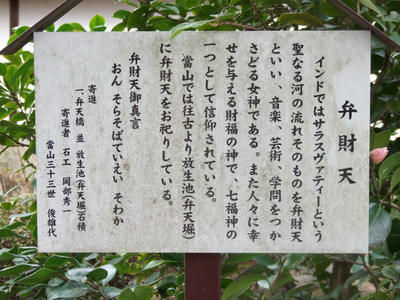 弁財天
インドではサラスヴァティーという
聖なる河の流れそのものを弁財天
といい、音楽 芸術、学問をつか
さどる女神である。また人々に幸
せを与える財福の神で、七福神の
一つとして信仰されている。
當山では往古より放生池(弁天堀)
に弁財天をお祀りしている。
弁財天御真言
おん そらそばていえい そわか
寄進
一、弁天橋 並 放生池(弁天堀)石積
寄進者 石工 岡部秀一
當山三十三世 俊雄代